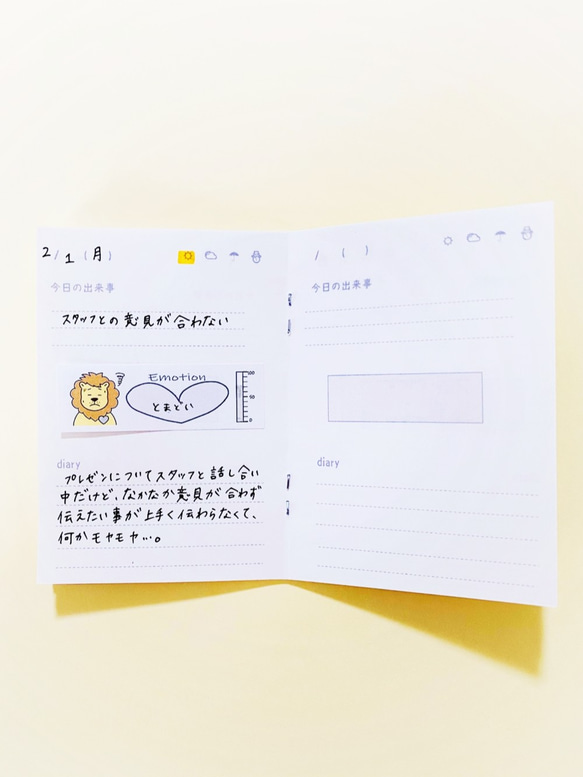 2/1(月)
今日の出来事
スタッフとの意見が合わない
Emotion
とまどい
100
50
0
diary
プレゼンについてスタッフと話し合い
中だけど、なかなか意見が合わず
伝えたい事が上手く伝わらなくて、
何かモヤモヤ…。
/ ( )
今日の出来事
diary